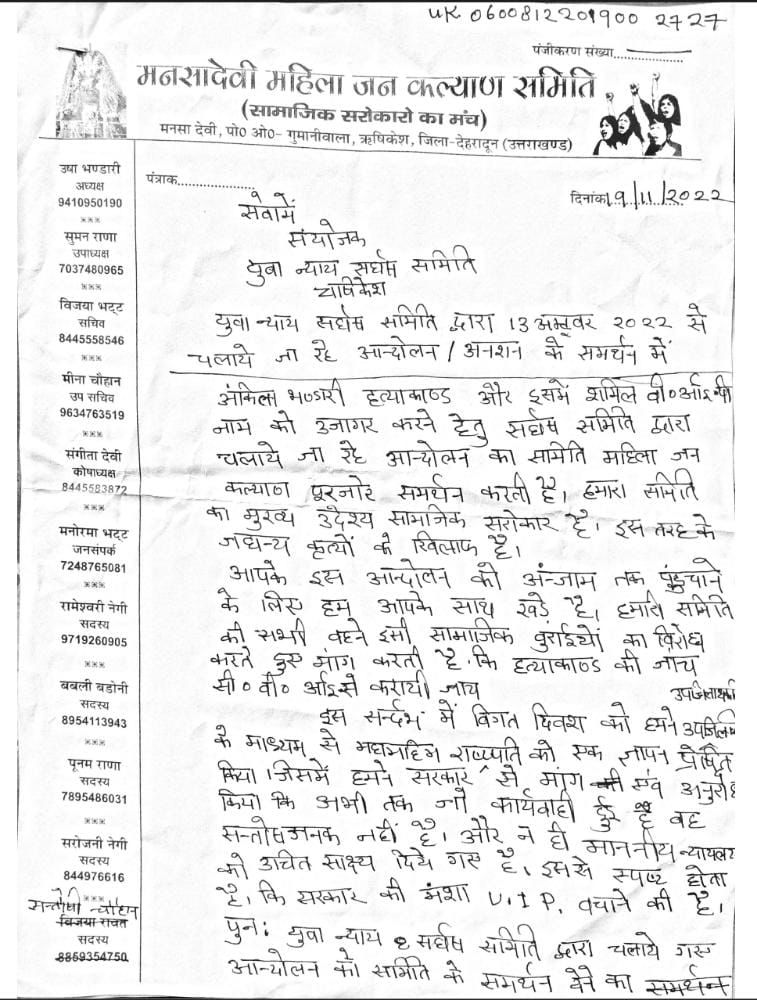 UK 0600812201900 2727
पंजीकरण संख्या..............
मनसादेवी महिला जन कल्याण समिति
(सामाजिक सरोकारो का मंच)
मनसा देवी, पो0 ओ0- गुमानीवाला, ऋषिकेश, जिला-देहरादून (उत्तराखण्ड)
पंत्राक..................
दिनांक 19/11/2022
उषा भण्डारी
अध्यक्ष
9410950190
***
सुमन राणा
उपाध्यक्ष
7037480965
***
विजया भट्ट
सचिव
8445558546
***
मीना चौहान
उप सचिव
9634763519
***
संगीता देवी
कोषाध्यक्ष
8445583872
***
मनोरमा भट्ट
जनसंपर्क
7248765081
***
रामेश्वरी नेगी
सदस्य
9719260905
***
बबली बडोनी
सदस्य
8954113943
***
पूनम राणा
सदस्य
7895486031
***
सरोजनी नेगी
सदस्य
844976616
***
सन्तोषी चौहान
विजया रावत
सदस्य
8859354750
सेवामें
संयोजक
युवा न्याय सर्घष समिति
ऋषिकेश
युवा न्याय सर्घष समिति द्वारा 13 अक्टूबर 2022 से
चलाये जा रहे आन्दोलन / अनशन के समर्थन में
अंकिता भण्डारी हत्याकाण्ड और इसमें शामिल वी०आई०पी
नाम को उजागर करने हेतु सर्घष समिति द्वारा
चलाये जा रहे आन्दोलन का समिति महिला जन
कल्याण पूरजोर समर्थन करती है। हमारा समिति
का मुख्य उदेश्य सामाजिक सरोकार है। इस तरह के
जघन्य कृत्यों के खिलाफ है।
आपके इस आन्दोलन को अंन्जाम तक पंहुचाने
के लिए हम आपके साथ खडे है। हमारी समिति
की सभी बहने इसी सामाजिक बुराईयों का विरोध
करते हुए मांग करती है. कि हत्याकाण्ड की जांच
सी० वी० आई से करायी जाय
इस सन्दर्भ में विगत दिवश को हमने उपजिला
के माध्यम से महामहिम राष्ट्रपति को एक ज्ञापन प्रेषित
किया। जिसमें हमने सरकार से मांग की एवं अनुरोध
किया कि अभी तक जो कार्यवाही हुई है वह
सन्तोषजनक नहीं है। और न ही माननीय न्यायलय
को उचित साक्ष्य दिये गए है. इससे स्पष्ट होता
है. कि सरकार की मंशा V.I.P. बचाने की है।
पुनः युवा न्याय सर्घष समिति द्वारा चलाये गए
आन्दोलन को समिति के समर्थन देने का समर्थन